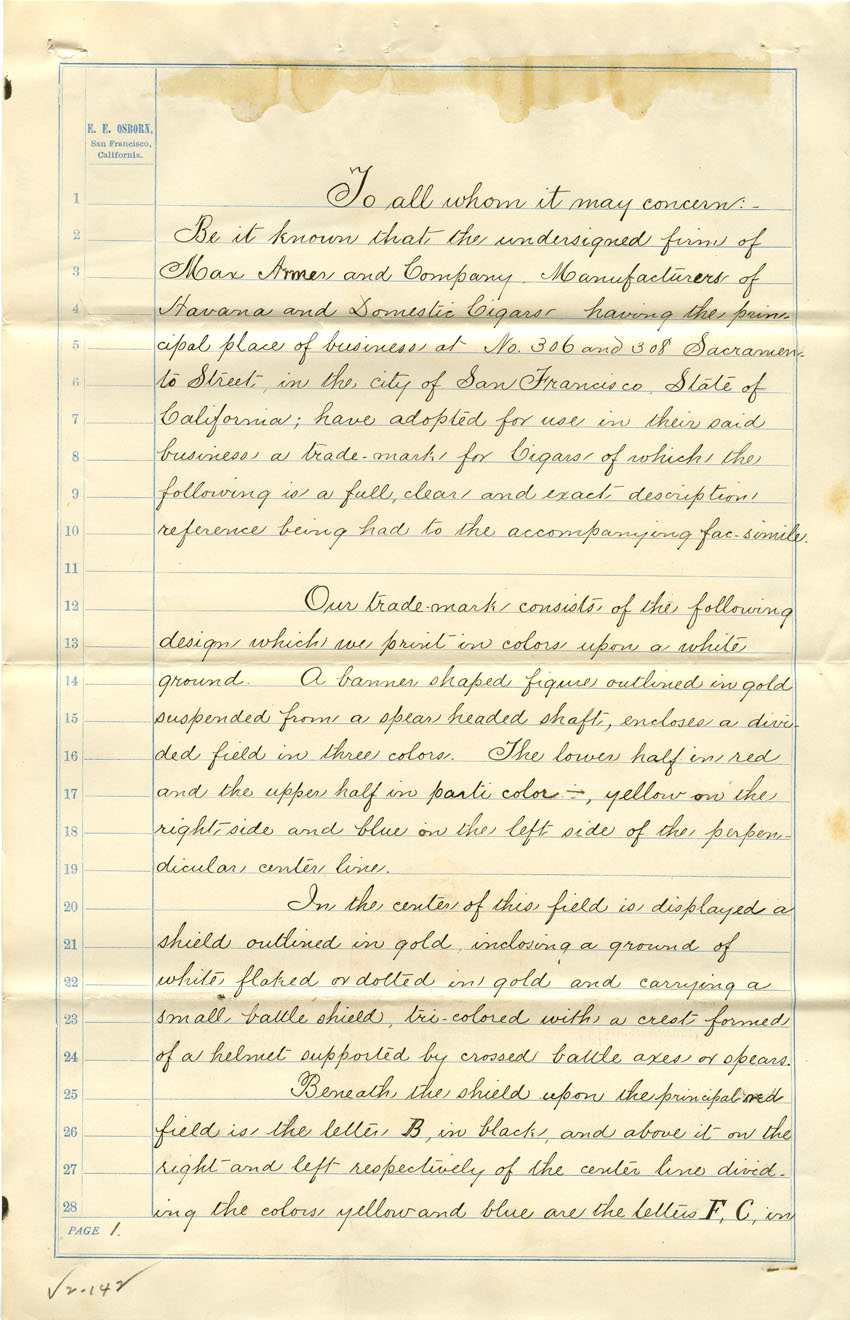 E. E. OSBORN,
San Francisco,
California.
1 To all whom it may concern:-
2 Be it known that the undersigned firm of
3 Max Armer and Company. Manufacturers of
4 Havana and Domestic Cigars having the prin-
5 cipal place of business at No. 306 and 308 Sacramen-
6 to Street, in the city of San Francisco, State of
7 California; have adopted for use in their said
8 business a trade-mark for Cigars of which the
9 following is a full, clear and exact description
10 reference being had to the accompanying fac-simile.
11
12 Our trade-mark consists of the following
13 design which we print in colors upon a white
14 ground. A banner shaped figure outlined in gold
15 suspended from a spear headed shaft, encloses a divi-
16 ded field in three colors. The lower half in red
17 and the upper half in parti color-, yellow on the
18 right side and blue on the left side of the perpen-
19 dicular center line.
20 In the center of this field is displayed a
21 shield outlined in gold, inclosing a ground of
22 white flaked or dotted in gold and carrying a
23 small battle shield, tri-colored with a crest formed
24 of a helmet supported by crossed battle axes or spears.
25 Beneath the shield upon the principal red
26 field is the letter B, in black, and above it on the
27 right and left respectively of the center line divid-
28 ing the colors yellow and blue are the letters F, C, in
PAGE 1.
√2-142